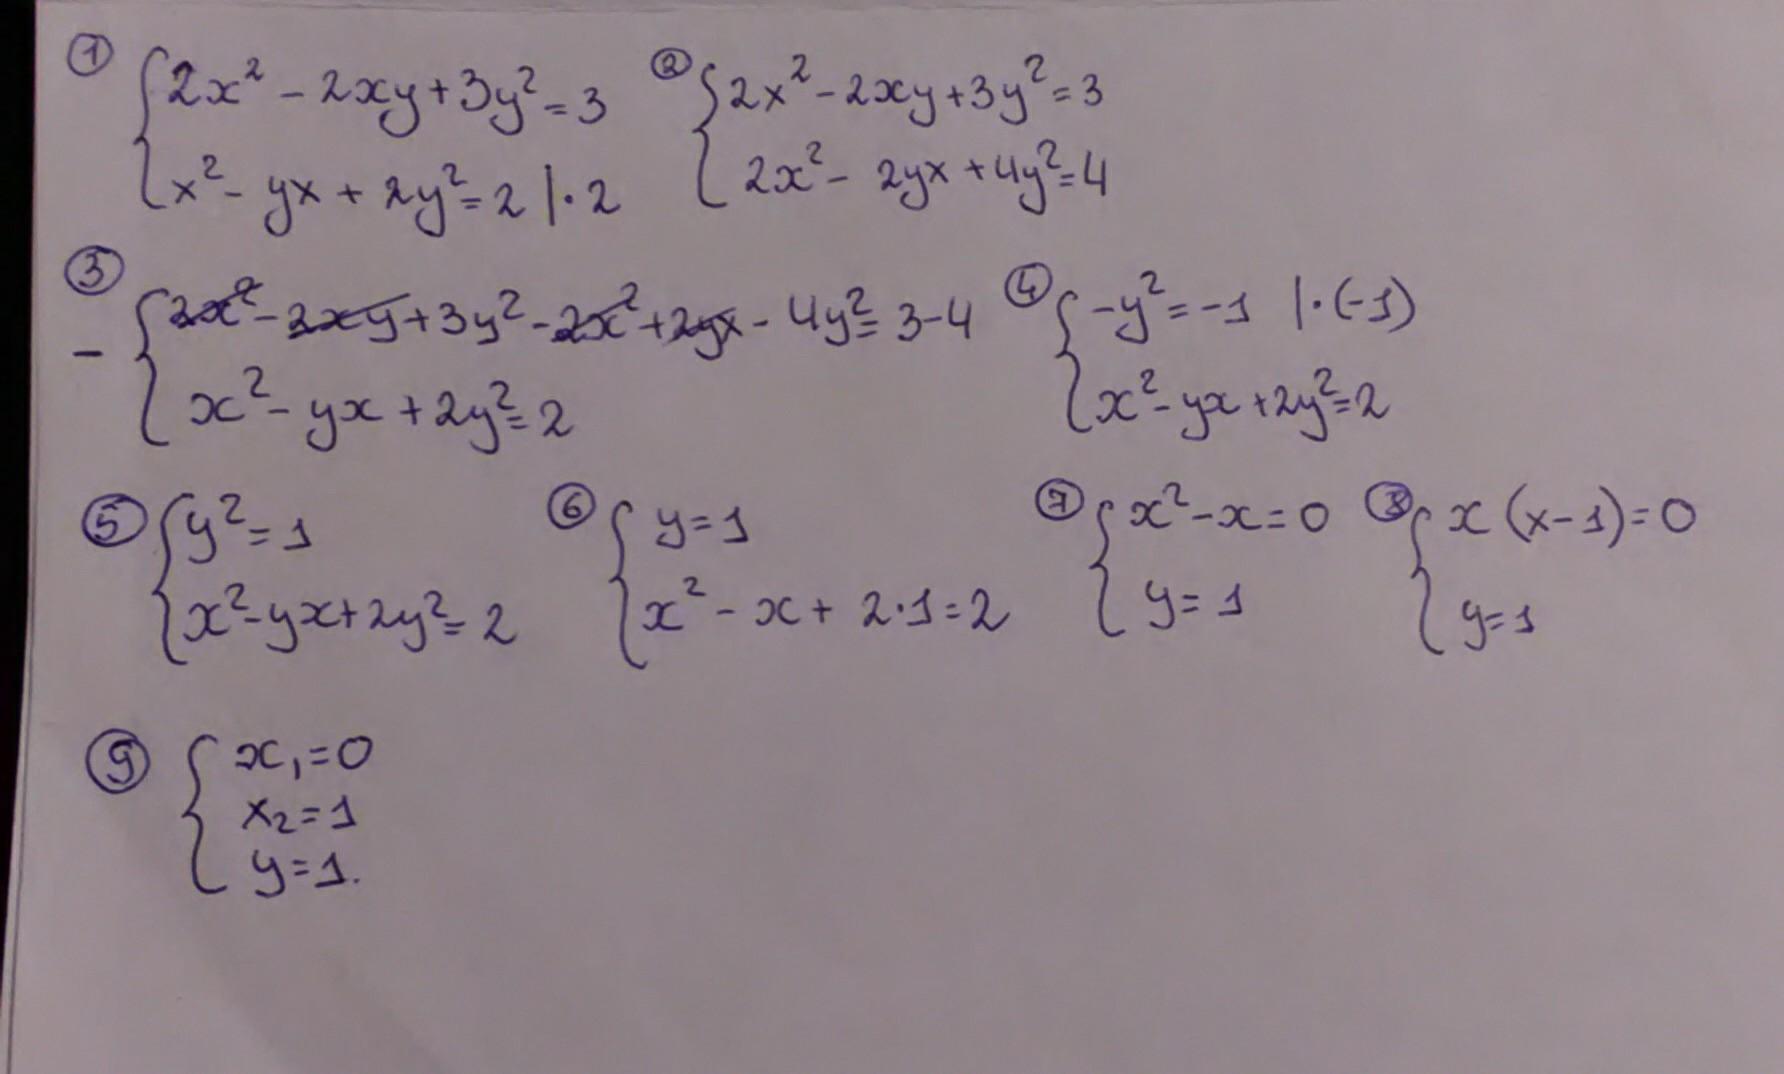 ① { 2x² - 2xy + 3y² = 3
x² - yx + 2y² = 2 | · 2
② { 2x² - 2xy + 3y² = 3
2x² - 2yx + 4y² = 4
③ - { 2x² - 2xy + 3y² - 2x² + 2yx - 4y² = 3 - 4
x² - yx + 2y² = 2
④ { -y² = -1 | · (-1)
x² - yx + 2y² = 2
⑤ { y² = 1
x² - yx + 2y² = 2
⑥ { y = 1
x² - x + 2 · 1 = 2
⑦ { x² - x = 0
y = 1
⑧ { x (x - 1) = 0
y = 1
⑨ { x₁ = 0
x₂ = 1
y = 1.